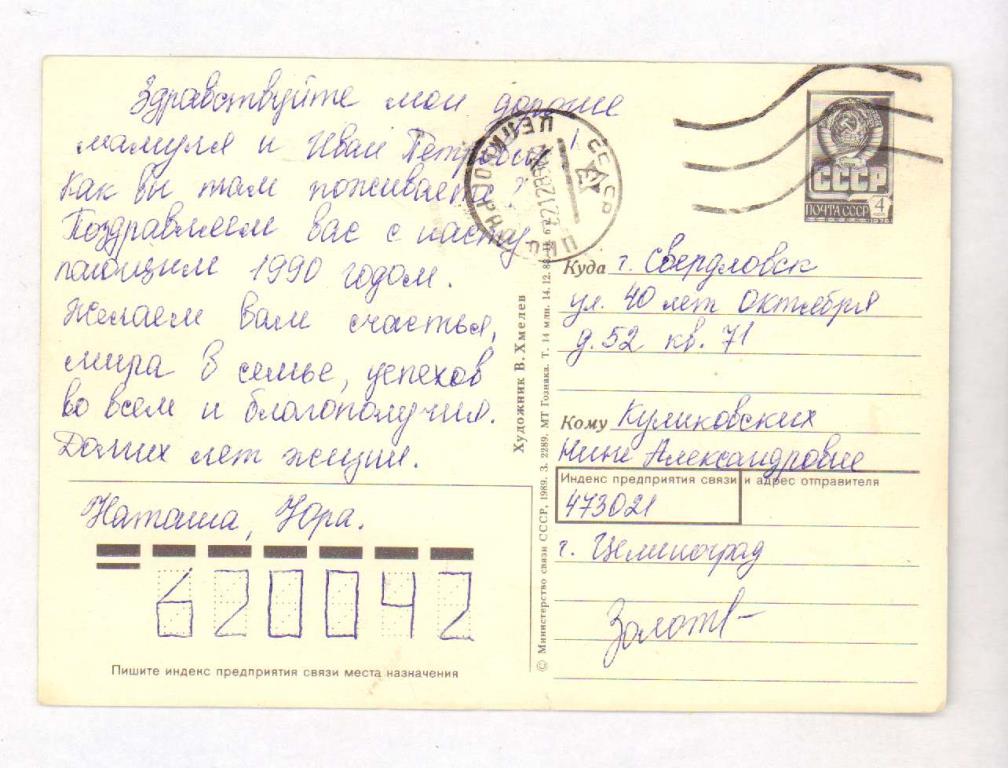 Здравствуйте мои дорогие
мамуля и Иван Петрович!
Как вы там поживаете?
Поздравляем вас с насту
пающим 1990 годом.
Желаем вам счастья,
мира в семье, успехов
во всем и благополучия.
Долгих лет жизни.
Наташа, Юра.
620042
Пишите индекс предприятия связи места назначения
© Министерство связи СССР, 1989. З. 2289. МТ Гознака. Т. 14 млн. 14.12.88.
Художник В. Хмелев
ЦЕЛИНОГРАД
СССР
ПОЧТА СССР
4
Куда г. Свердловск
ул. 40 лет Октября
д. 52 кв. 71
Кому Куликовских
Нине Александровне
Индекс предприятия связи и адрес отправителя
473021
г. Целиноград